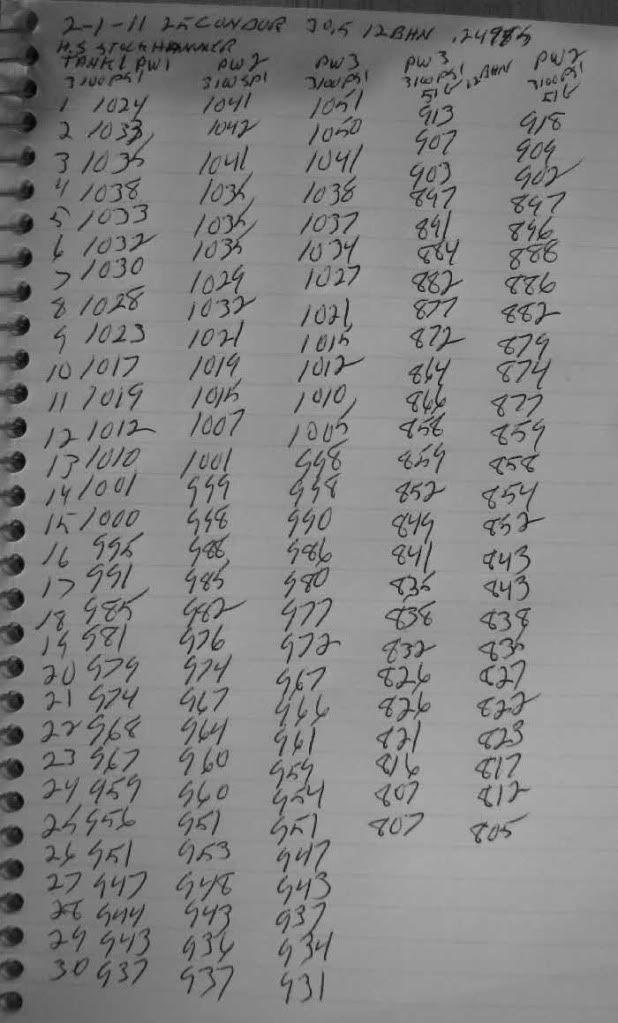 2-1-11 25 CONDOR 30.5 12BHN .24985
H.S STOCK HAMMER
TANK1 PW1 PW2 PW3 PW3 PW2
3100 PSI 3100 SPI 3100 PSI 3100 PSI 12 BHN 3100 PSI
51G 51G
1 1024 1041 1051 913 918
2 1033 1042 1050 907 909
3 1035 1041 1041 903 902
4 1038 1035 1038 897 897
5 1033 1035 1037 891 896
6 1032 1035 1034 884 888
7 1030 1029 1027 882 886
8 1028 1032 1021 877 882
9 1023 1021 1015 872 879
10 1017 1019 1012 864 874
11 1019 1015 1010 866 877
12 1012 1007 1005 858 859
13 1010 1001 998 859 858
14 1001 999 998 852 854
15 1000 998 990 849 852
16 995 986 986 841 843
17 991 985 980 835 843
18 985 982 977 838 838
19 981 976 972 832 835
20 979 974 967 826 827
21 974 967 966 826 822
22 968 964 961 821 823
23 967 960 959 816 817
24 959 960 954 807 812
25 956 951 951 807 805
26 951 953 947
27 947 948 943
28 944 943 937
29 943 936 934
30 937 937 931